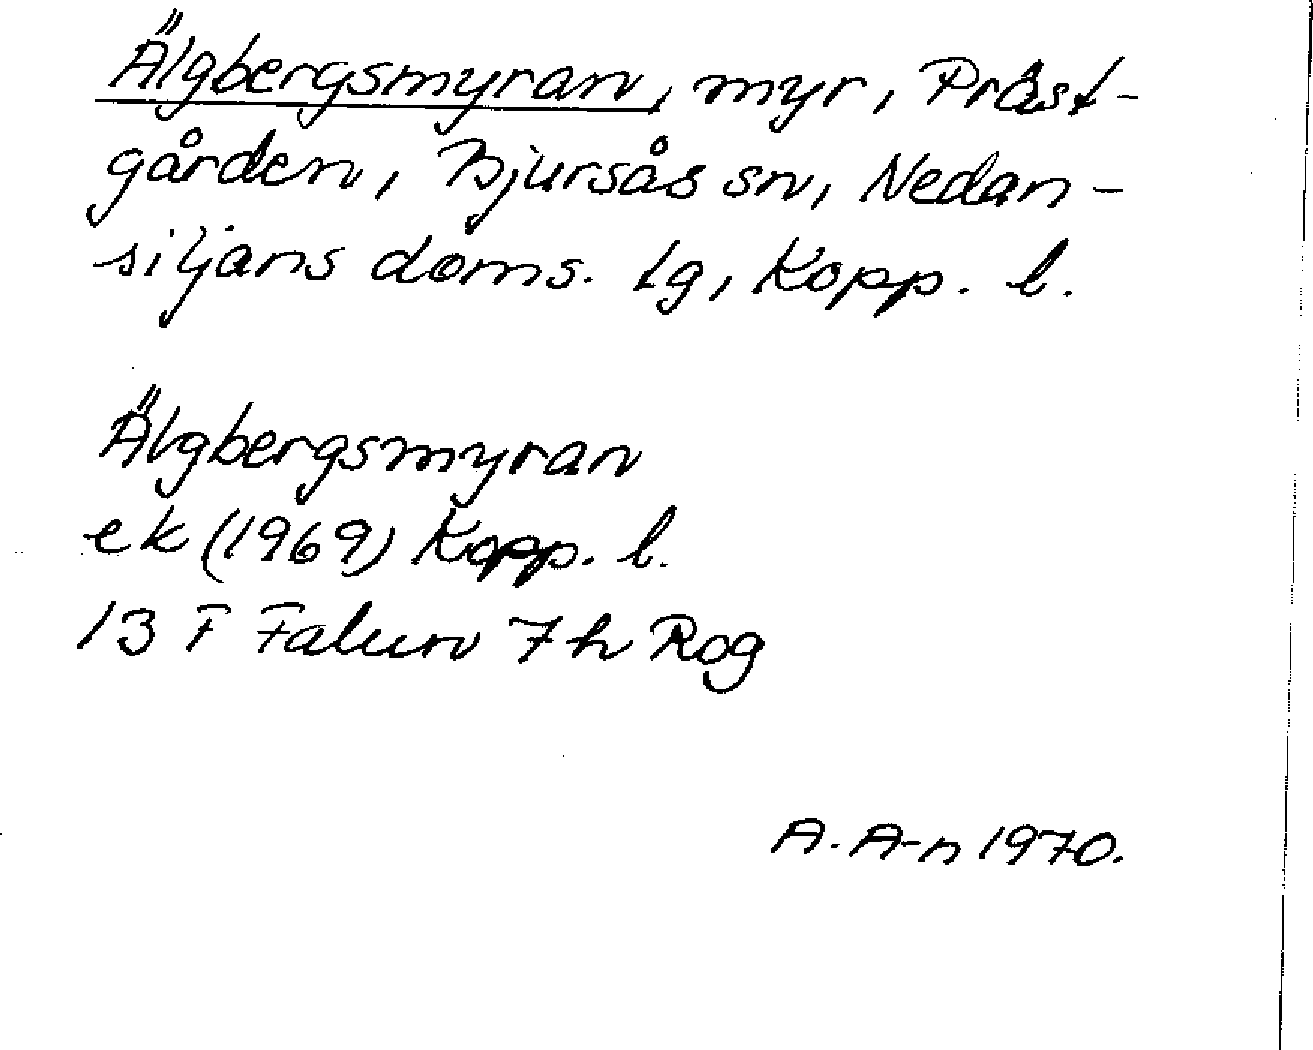 Älgbergsmyran, myr, Präst-
gården, Bjursås sn, Nedan-
siljans doms. lg, Kopp. l.
Älgbergsmyran
ek (1969) Kopp. l.
13 F Falun 7h Rog
A. A-n 1970.